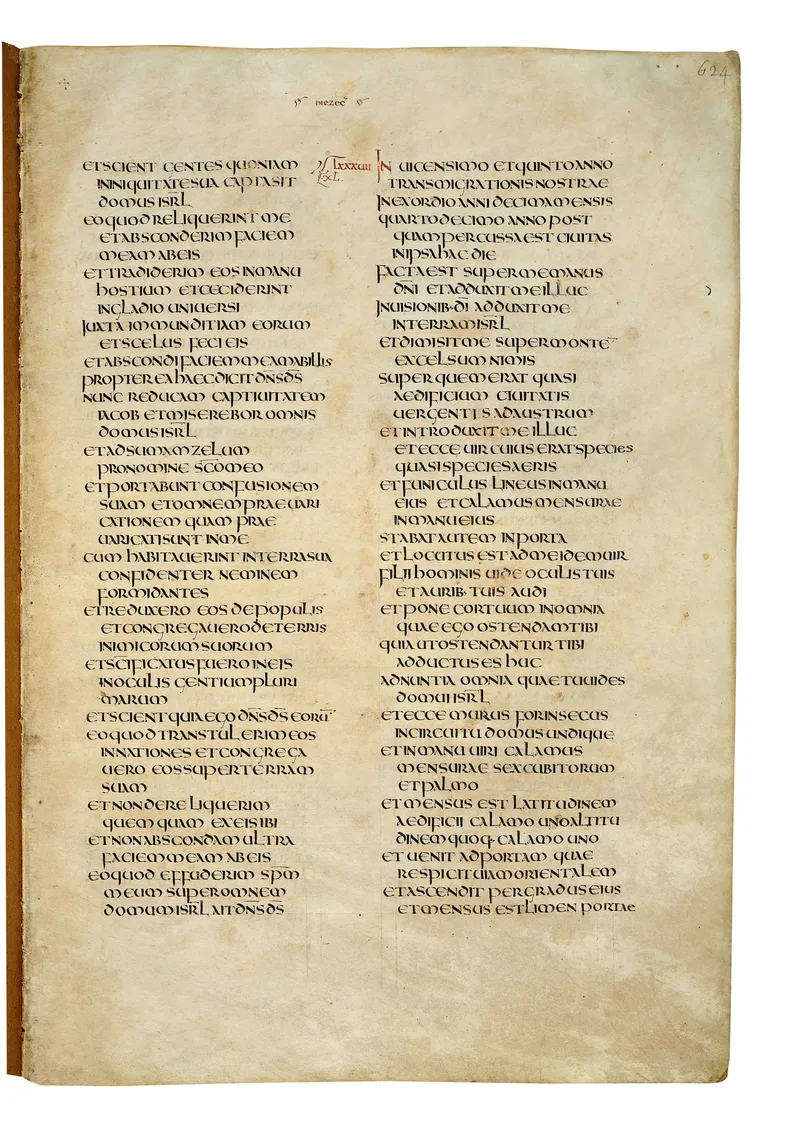 624
HIEZEC
ETSCIENT GENTES QUONIAM
ININIQUITATESUA CAPTASIT
DOMUS ISRL
EOQUODRELIQUERINT ME
ETABSCONDERIM FACIEM
MEAM ABEIS
ETTRADIDERIM EOS INMANU
HOSTIUM ETCECIDERINT
INGLADIO UNIUERSI
IUXTA IMMUNDITIAM EORUM
ETSCELUS FECI EIS
ETABSCONDI FACIEM MEAM ABILLIS
PROPTEREA HAEC DICIT DNS DS
NUNC REDUCAM CAPTIUITATEM
IACOB ETMISEREBOR OMNIS
DOMUS ISRL
ETADSUMAM ZELUM
PRO NOMINE SCO MEO
ETPORTABUNT CONFUSIONEM
SUAM ETOMNEM PRAEUARI
CATIONEM QUAM PRAE
UARICATI SUNT INME
CUM HABITAUERINT INTERRASUA
CONFIDENTER NEMINEM
FORMIDANTES
ETREDUXERO EOS DEPOPULIS
ETCONGREGAUERO DETERRIS
INIMICORUM SUORUM
ETSCIFICATUS FUERO INEIS
INOCULIS GENTIUM PLURI
MARUM
ETSCIENT QUIA EGO DNS DS EORU
EOQUOD TRANSTULERIM EOS
INNATIONES ETCONGREGA
UERO EOS SUPERTERRAM
SUAM
ETNON DERELIQUERIM
QUEMQUAM EXEIS IBI
ETNON ABSCONDAM ULTRA
FACIEM MEAM ABEIS
EOQUOD EFFUDERIM SPM
MEUM SUPEROMNEM
DOMUM ISRL AIT DNS DS
LXXXIIII
IN UICENSIMO ETQUINTO ANNO
TRANSMIGRATIONIS NOSTRAE
INEXORDIO ANNI DECIMA MENSIS
QUARTODECIMO ANNO POST
QUAM PERCUSSA EST CIUITAS
INIPSA HAC DIE
FACTA EST SUPER ME MANUS
DNI ETADDUXIT ME ILLUC
INUISIONIB· DI ADDUXIT ME
INTERRAM ISRL
ETDIMISIT ME SUPER MONTE
EXCELSUM NIMIS
SUPER QUEM ERAT QUASI
AEDIFICIUM CIUITATIS
UERGENTIS ADAUSTRUM
ETINTRODUXIT ME ILLUC
ETECCE UIR CUIUS ERAT SPECIES
QUASI SPECIES AERIS
ETFUNICULUS LINEUS INMANU
EIUS ETCALAMUS MENSURAE
INMANU EIUS
STABAT AUTEM INPORTA
ETLOCUTUS EST ADME IDEM UIR
FILI HOMINIS UIDE OCULIS TUIS
ETAURIB· TUIS AUDI
ETPONE COR TUUM INOMNIA
QUAE EGO OSTENDAM TIBI
QUIA UT OSTENDANTUR TIBI
ADDUCTUS ES HUC
ADNUNTIA OMNIA QUAE TU UIDES
DOMUI ISRL
ETECCE MURUS FORINSECUS
INCIRCUITU DOMUS UNDIQUE
ETINMANU UIRI CALAMUS
MENSURAE SEX CUBITORUM
ETPALMO
ETMENSUS EST LATITUDINEM
AEDIFICII CALAMO UNO ALTITU
DINEM QUOQ· CALAMO UNO
ET UENIT ADPORTAM QUAE
RESPICIT UIAM ORIENTALEM
ETASCENDIT PERGRADUS EIUS
ETMENSUS EST LIMEN PORTAE